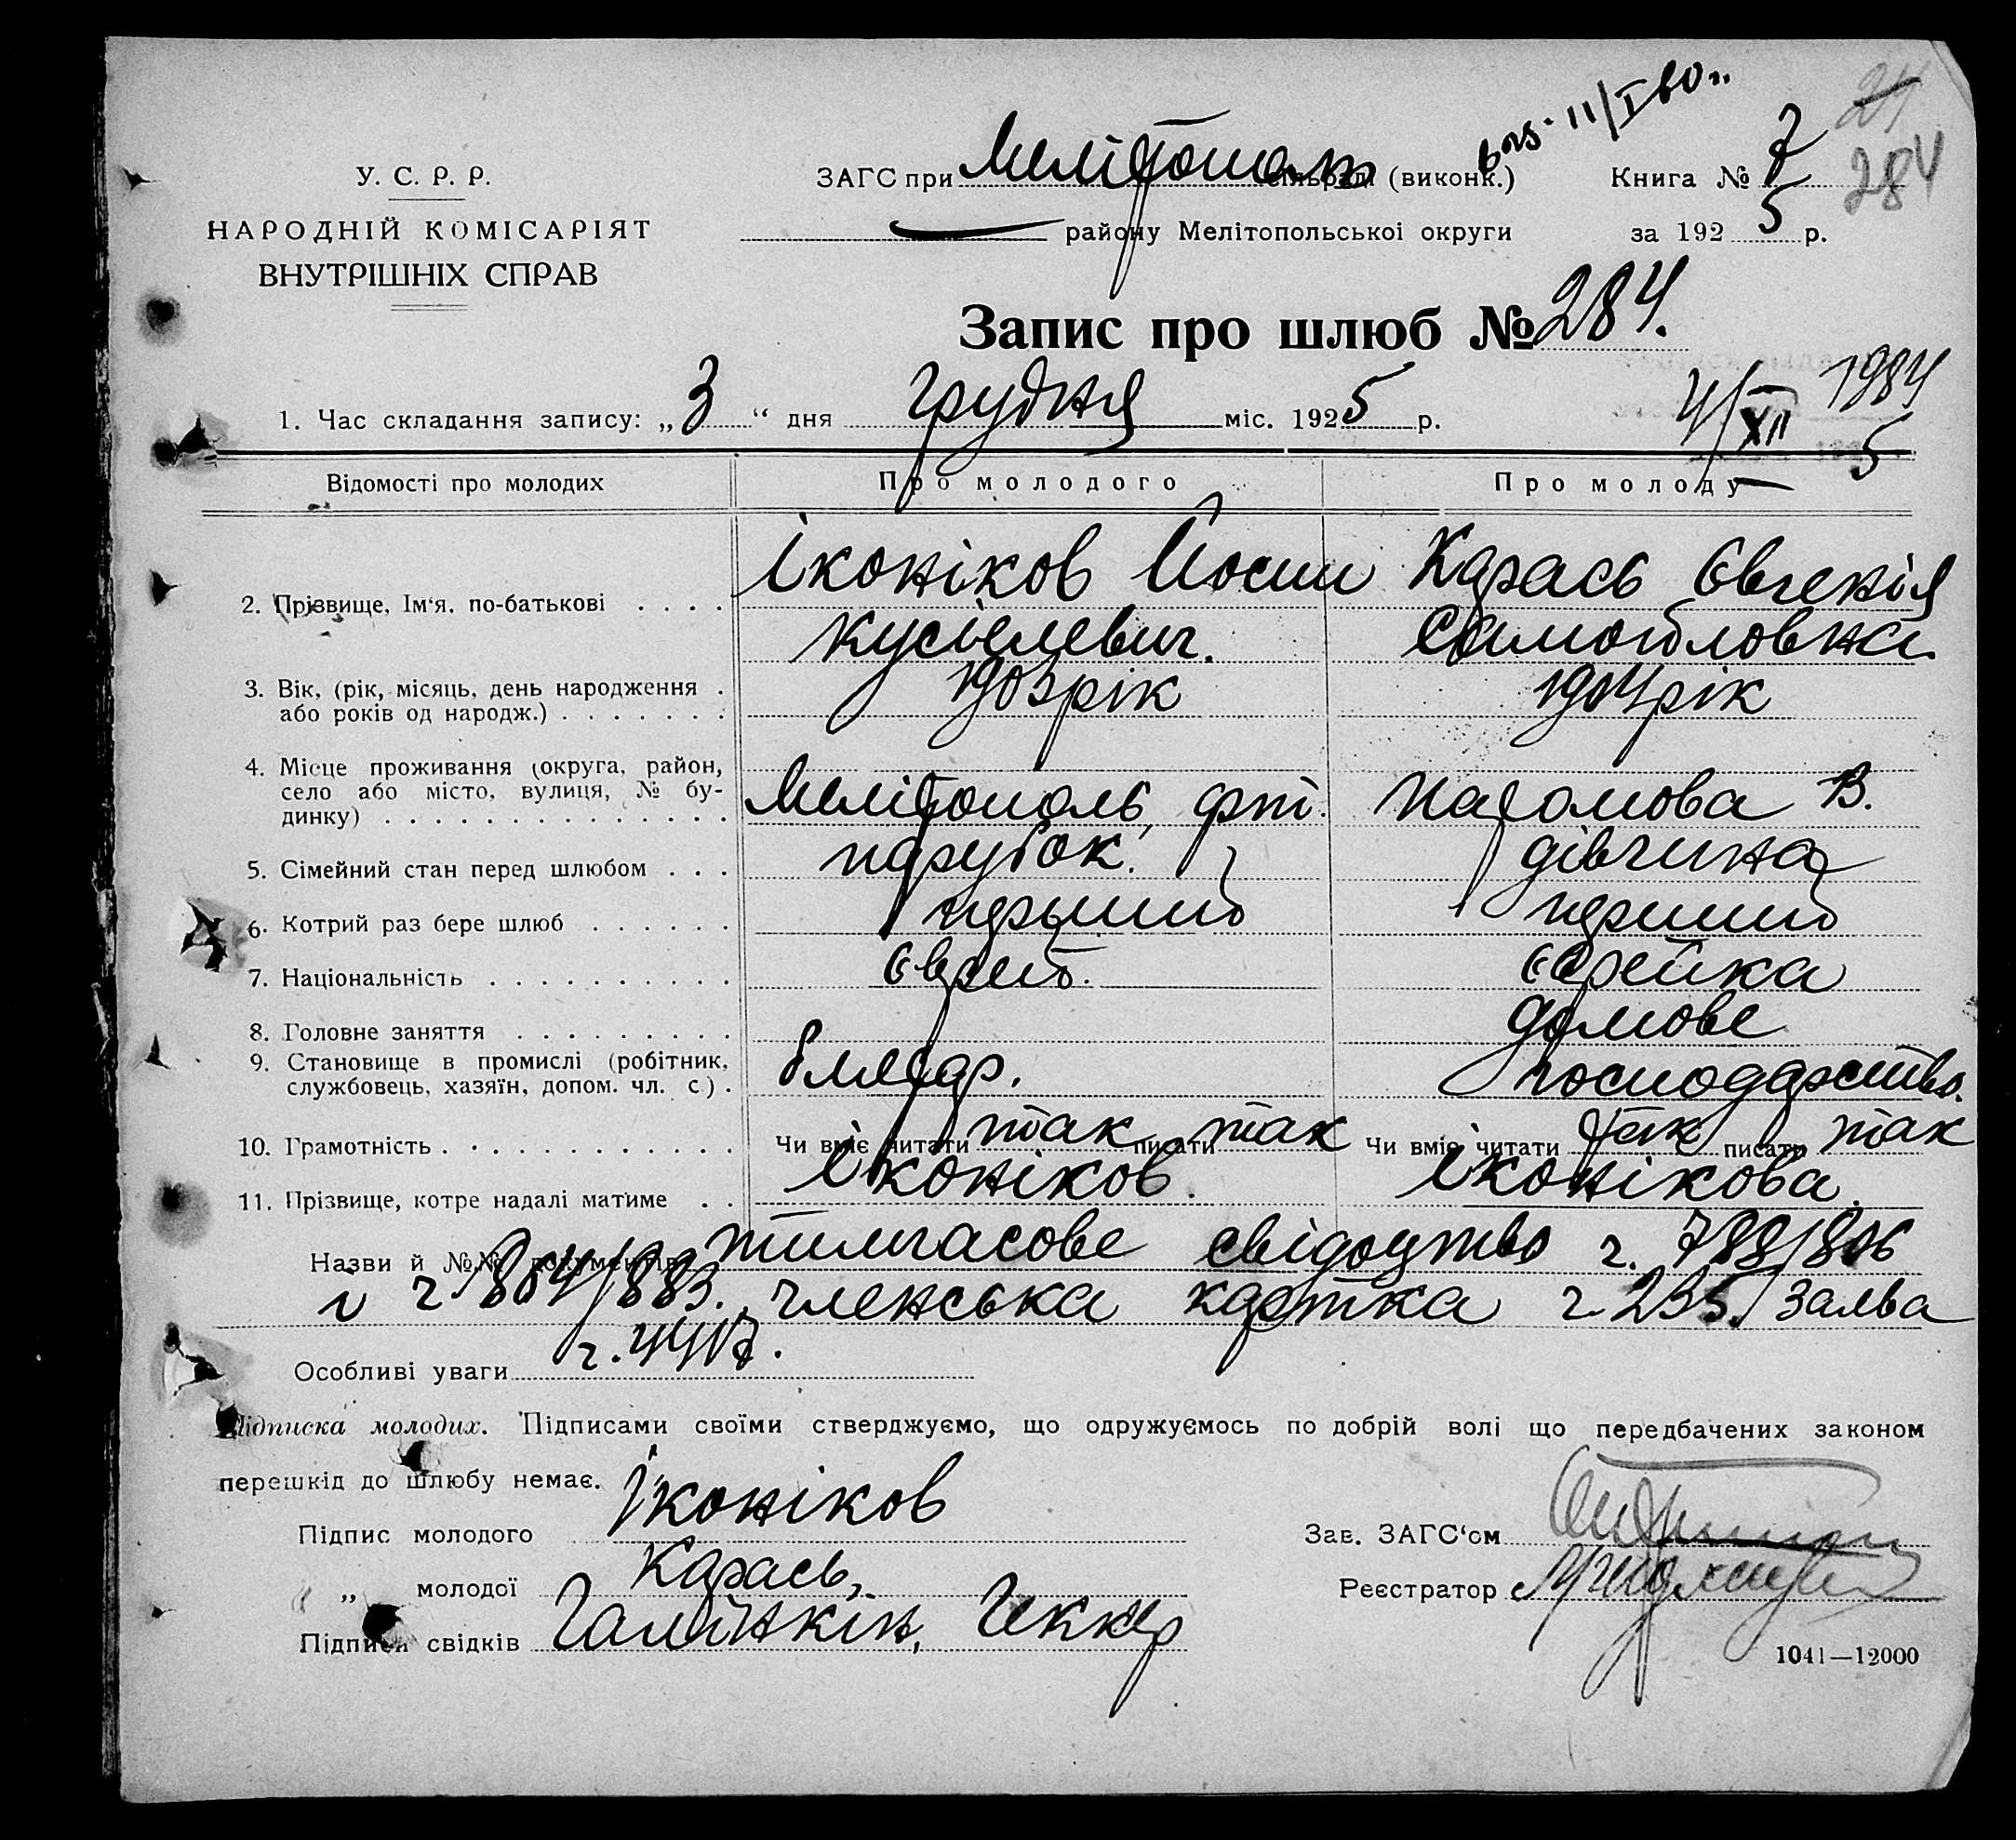 24
284
воз. 11/I 60 г.
У. С. Р. Р.
НАРОДНІЙ КОМІСАРІЯТ
ВНУТРІШНІХ СПРАВ
ЗАГС при Мелітополь сільраді (виконк.) Книга № 7
— району Мелітопольської округи за 1925 р.
Запис про шлюб № 284.
1. Час складання запису: „3“ дня грудня міс. 1925 р.
4/XII 5
1984
Відомості про молодих Про молодого Про молоду
2. Прізвище, Ім'я, по-батькові . . . . Іконіков Йосип Карась Євгенія
Кусієлевич. Самойловна
3. Вік, (рік, місяць, день народження . 1903 рік 1904 рік
або років од народж.) . . . . . . .
4. Місце проживання (округа, район,
село або місто, вулиця, № бу-
динку) . . . . . . . . . . . . . . Мелітополь, В.
5. Сімейний стан перед шлюбом . . . парубок. дівчина
6. Котрий раз бере шлюб . . . . . . перший перший
7. Національність . . . . . . . . . . єврей. єврейка
8. Головне заняття . . . . . . . . . домове
9. Становище в промислі (робітник,
службовець, хазяїн, допом. чл. с.) . бляхар. господарство.
10. Грамотність . . . . . . . . . . . . Чи вміє читати так писати так Чи вміє читати так писати так
11. Прізвище, котре надалі матиме . . Іконіков. Іконікова.
Назви й №№ документів тимчасове свідоцтво ч. 788/806
і ч. 864/883., членська картка ч. 235. заява
Особливі уваги ч. 4417.
Підписка молодих. Підписами своїми стверджуємо, що одружуємось по добрій волі що передбачених законом
перешкід до шлюбу немає.
Підпис молодого Іконіков Зав. ЗАГС'ом
„ молодої Карась, Реєстратор
Підписи свідків Галайнкін, Геккер
1041—12000